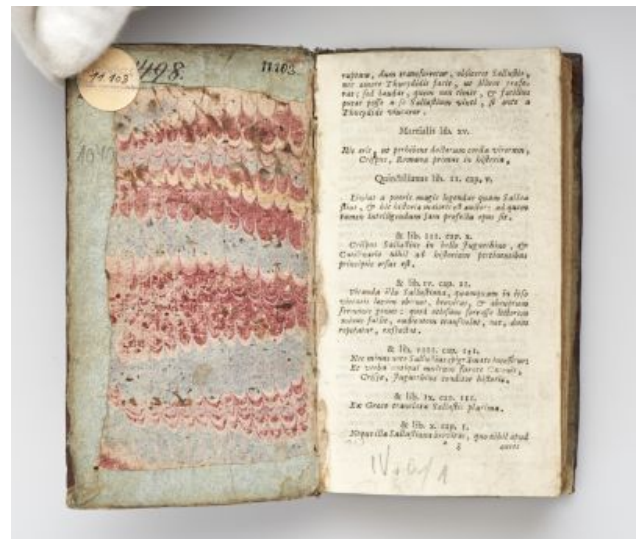 11103
498.
11.103
1010
rapinæ, dum transferretur, obsceret Sallustio,
nec Thucydidis facie, ut
; sed laudat, quem non timet, & facilius
putat posse a se Sallustium vinci, si ante a
Thucydide vincatur.
Martialis lib. XV.
Hic erit, ut perhibent doctorum corda virorum,
Crispus, Romana primus in historia.
Quinctilianus lib. II. cap. V.
Livius a pueris magis legendus quam Sallu-
stius, & hic historiæ maior est auctor: ad quem
tamen intelligendum jam profectu opus sit.
& lib. III. cap. X.
Crispus Sallustius in bello Jugurthino, &
Catilinario nihil ad historiam pertinentibus
principiis orsus est.
& lib. IV. cap. II.
Vitanda illa Sallustiana, quamquam in ipso
virtutis locum obtinet, brevitas, & abruptum
sermonis genus: quod otiosum fortasse lectorem
minus fallit, audientem transvolat, nec, dum
repetatur, exspectat.
& lib. VIII. cap. III.
Nec minus noto Sallustius epigrammate incessitur:
Et verba antiqui multum furate Catonis,
Crispe, Jugurthinæ conditor historiæ.
& lib. IX. cap. III.
Ex Græco translata Sallustii plurima.
& lib. X. cap. I.
Neque illa Sallustiana brevitas, qua nihil apud
aures